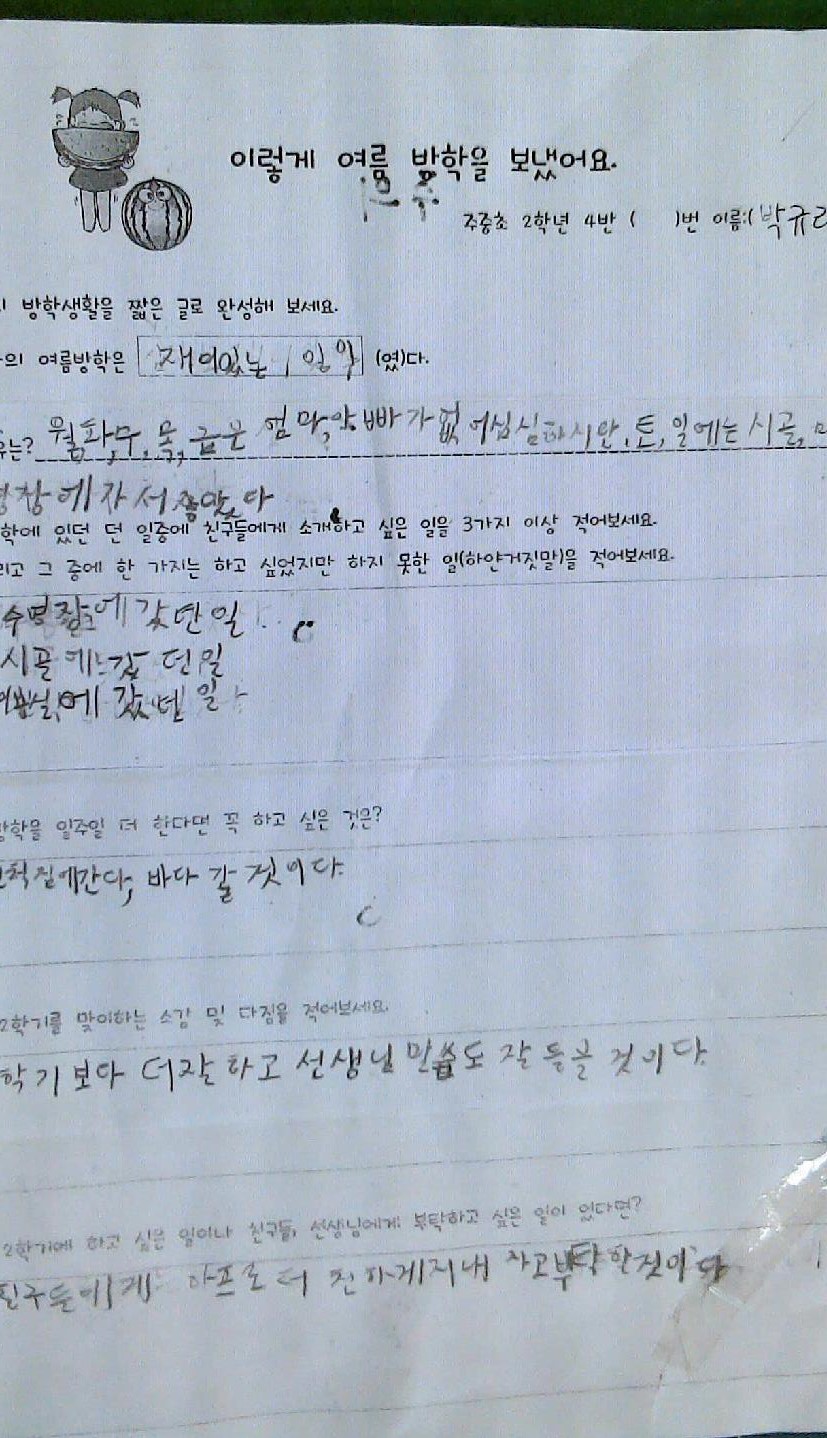 이렇게 여름 방학을 보냈어요.
주중초 2학년 4반 ( )번 이름:( 박규리
방학생활을 짧은 글로 완성해 보세요.
의 여름방학은 재미있는 일 (였)다.
유는? 월,화,수, 목, 금은 엄마,아빠가 없어심심하시만,토,일에는 시골,
장에가서좋았다
학에 있던 던 일중에 친구들에게 소개하고 싶은 일을 3가지 이상 적어보세요.
리고 그 중에 한 가지는 하고 싶었지만 하지 못한 일(하얀거짓말)을 적어보세요.
수영장에 갔던일
시골에 갔던일
에 갔던일
방학을 일주일 더 한다면 꼭 하고 싶은 것은?
척집에간다, 바다 갈 것이다.
2학기를 맞이하는 소감 및 다짐을 적어보세요.
학기보다 더잘하고 선생님 말씀도 잘 들을 것이다.
2학기에 하고 싶은 일이나 친구들, 선생님에게 부탁하고 싶은 일이 있다면?
친구들에게 아프로 더 친하게지내자고부탁할것이다